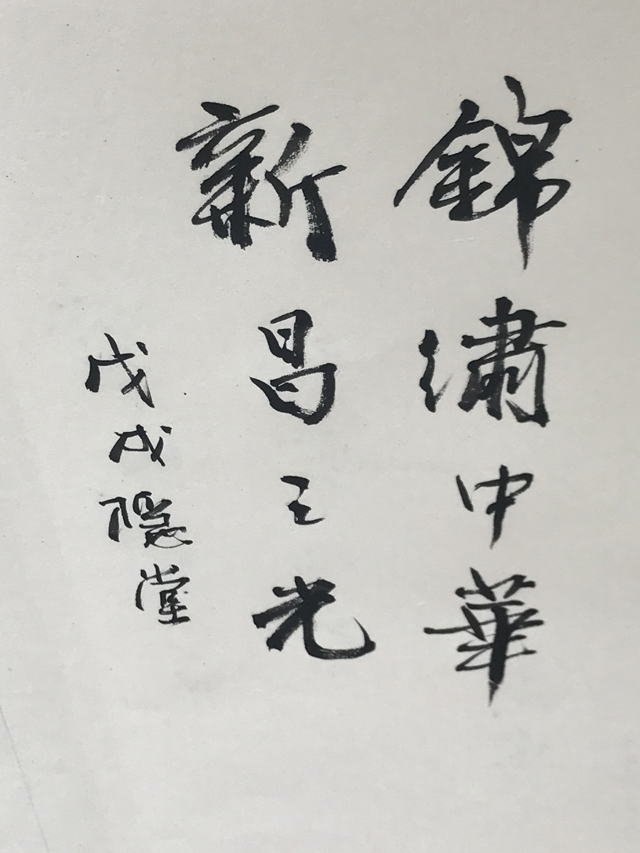 錦繡中華
新昌三光
戊戌隱堂